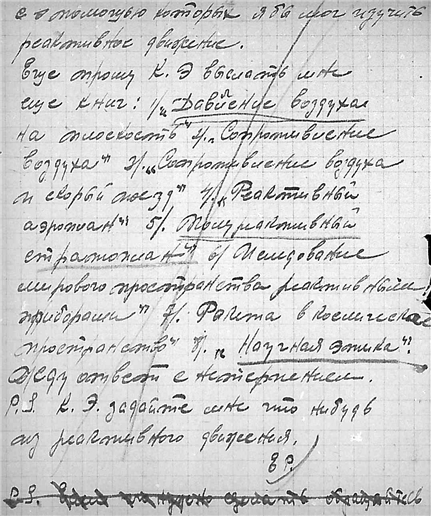 с помощью которых я бы мог изучить
реактивное движение.
Еще прошу К. Э выслать мне
еще книг: 1/„ Давление воздуха
на плоскость" 2/. „Сопротивление
воздуха" 3/. „Сопротивление воздуха
и скорый поезд" 4/. „Реактивный
аэроплан" 5/. Полуреактивный
стратоплан" 6/ Иследование
мирового пространства реактивными
приборами" 7/. Ракета в космическое
пространство" 8/. „ Научная этика".
Жду ответ с нетерпением.
P.S. К. Э. задайте мне что нибудь
из реактивного движения.
P.S.